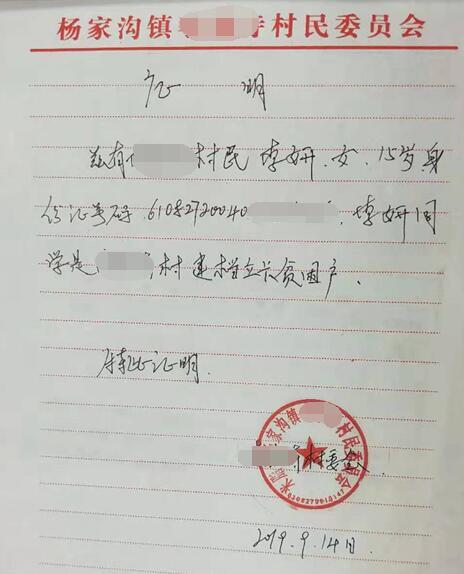 杨家沟镇 寺村民委员会
证 明
兹有 村民 李妍,女,15岁,身
份证号码:6108272004 ,李妍同
学是 村建档立卡贫困户、
特此证明.
家沟镇 村民委员会
村委会
2019.9.14日